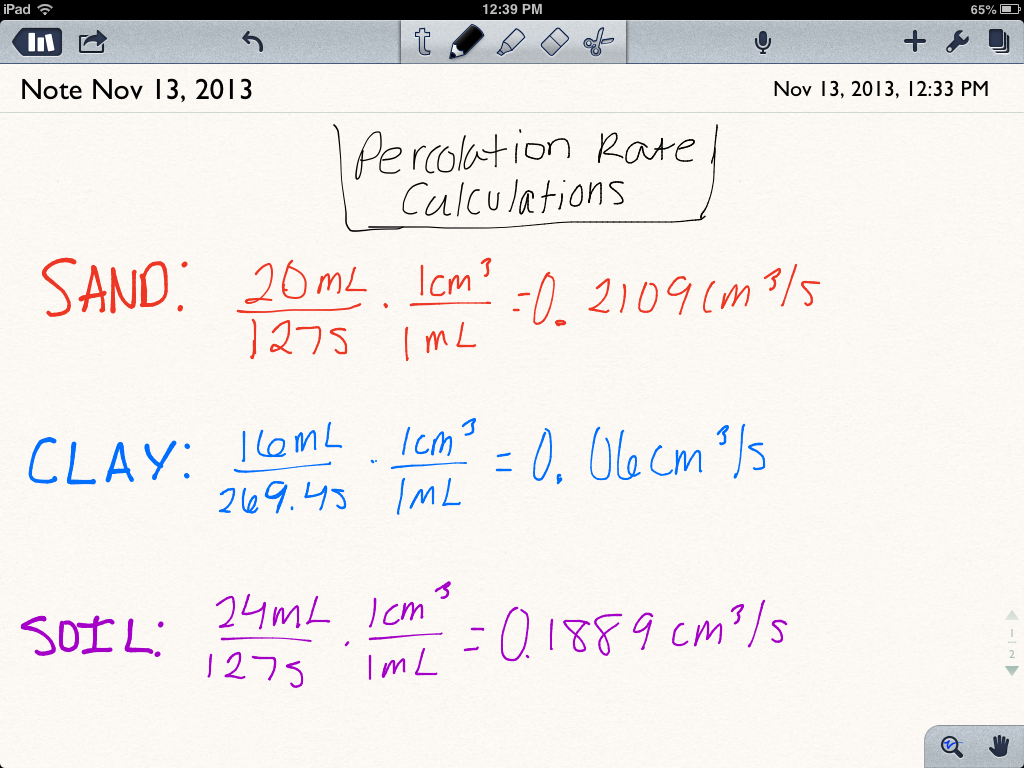 iPad 12:39 PM 65%
t
Note Nov 13, 2013 Nov 13, 2013, 12:33 PM
Percolation Rate
Calculations
SAND: 20mL/127s · 1cm³/1mL = 0.2109cm³/s
CLAY: 16mL/269.4s · 1cm³/1mL = 0.06cm³/s
SOIL: 24mL/127s · 1cm³/1mL = 0.1889 cm³/s
1
2